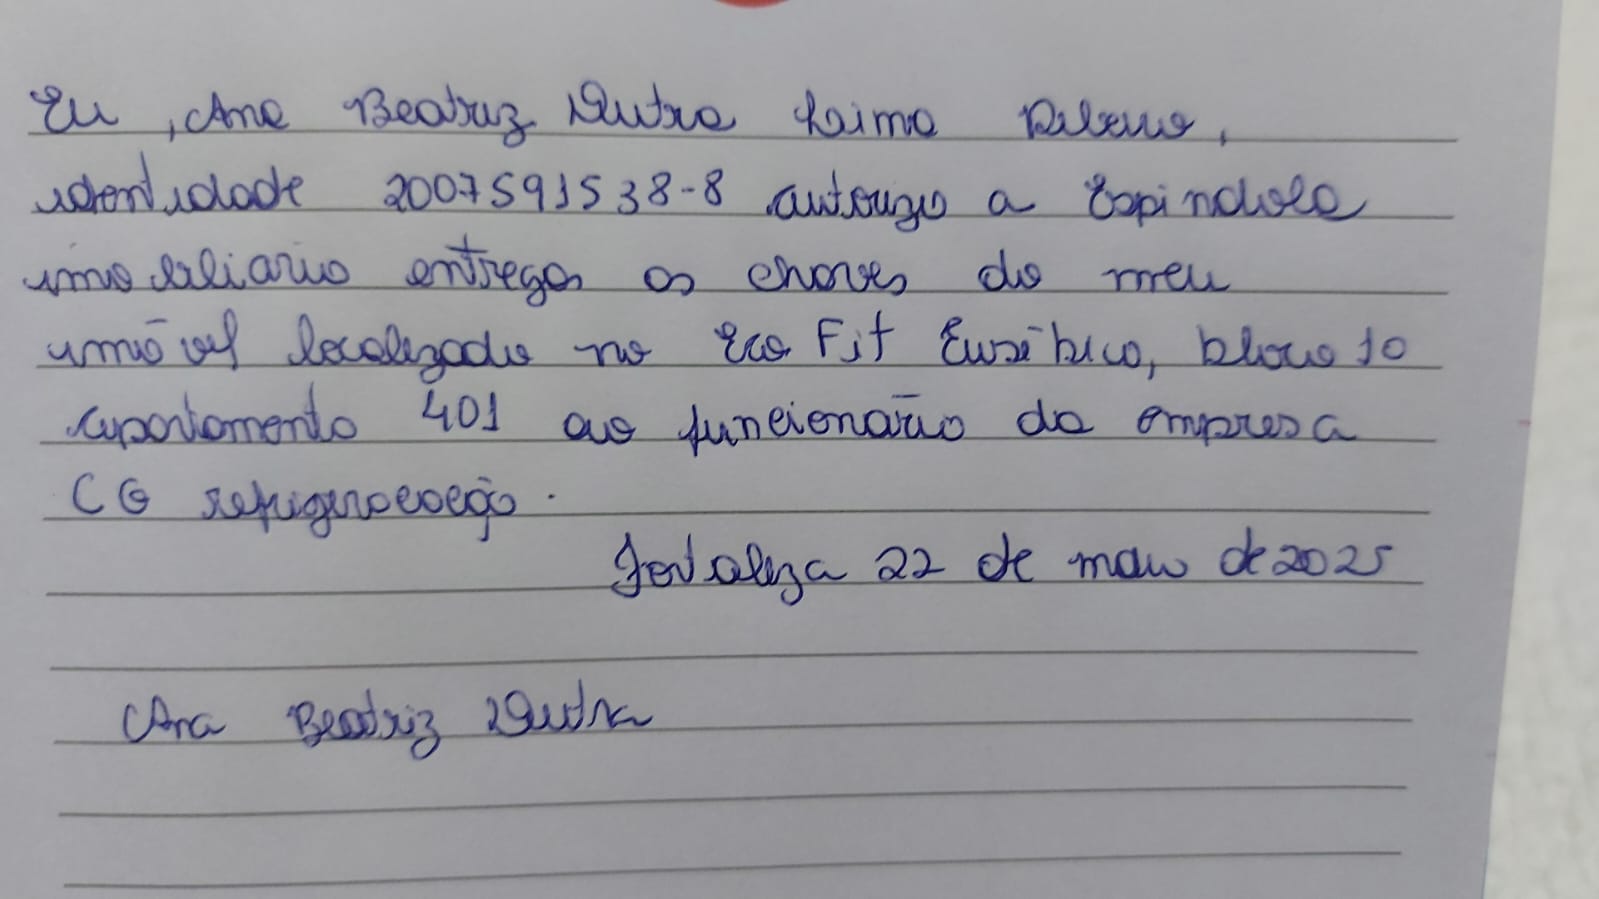 Eu, Ana Beatriz Dutra Lima Ribeiro,
identidade 2007591538-8 autorizo a Espindola
imobiliario entregas as chaves do meu
imóvel localizado no Eco Fit Eusébio, bloco 10
apartamento 401 ao funcionário da empresa
CG refrigeracação.
Fortaleza 22 de maio de 2025
Ana Beatriz Dutra